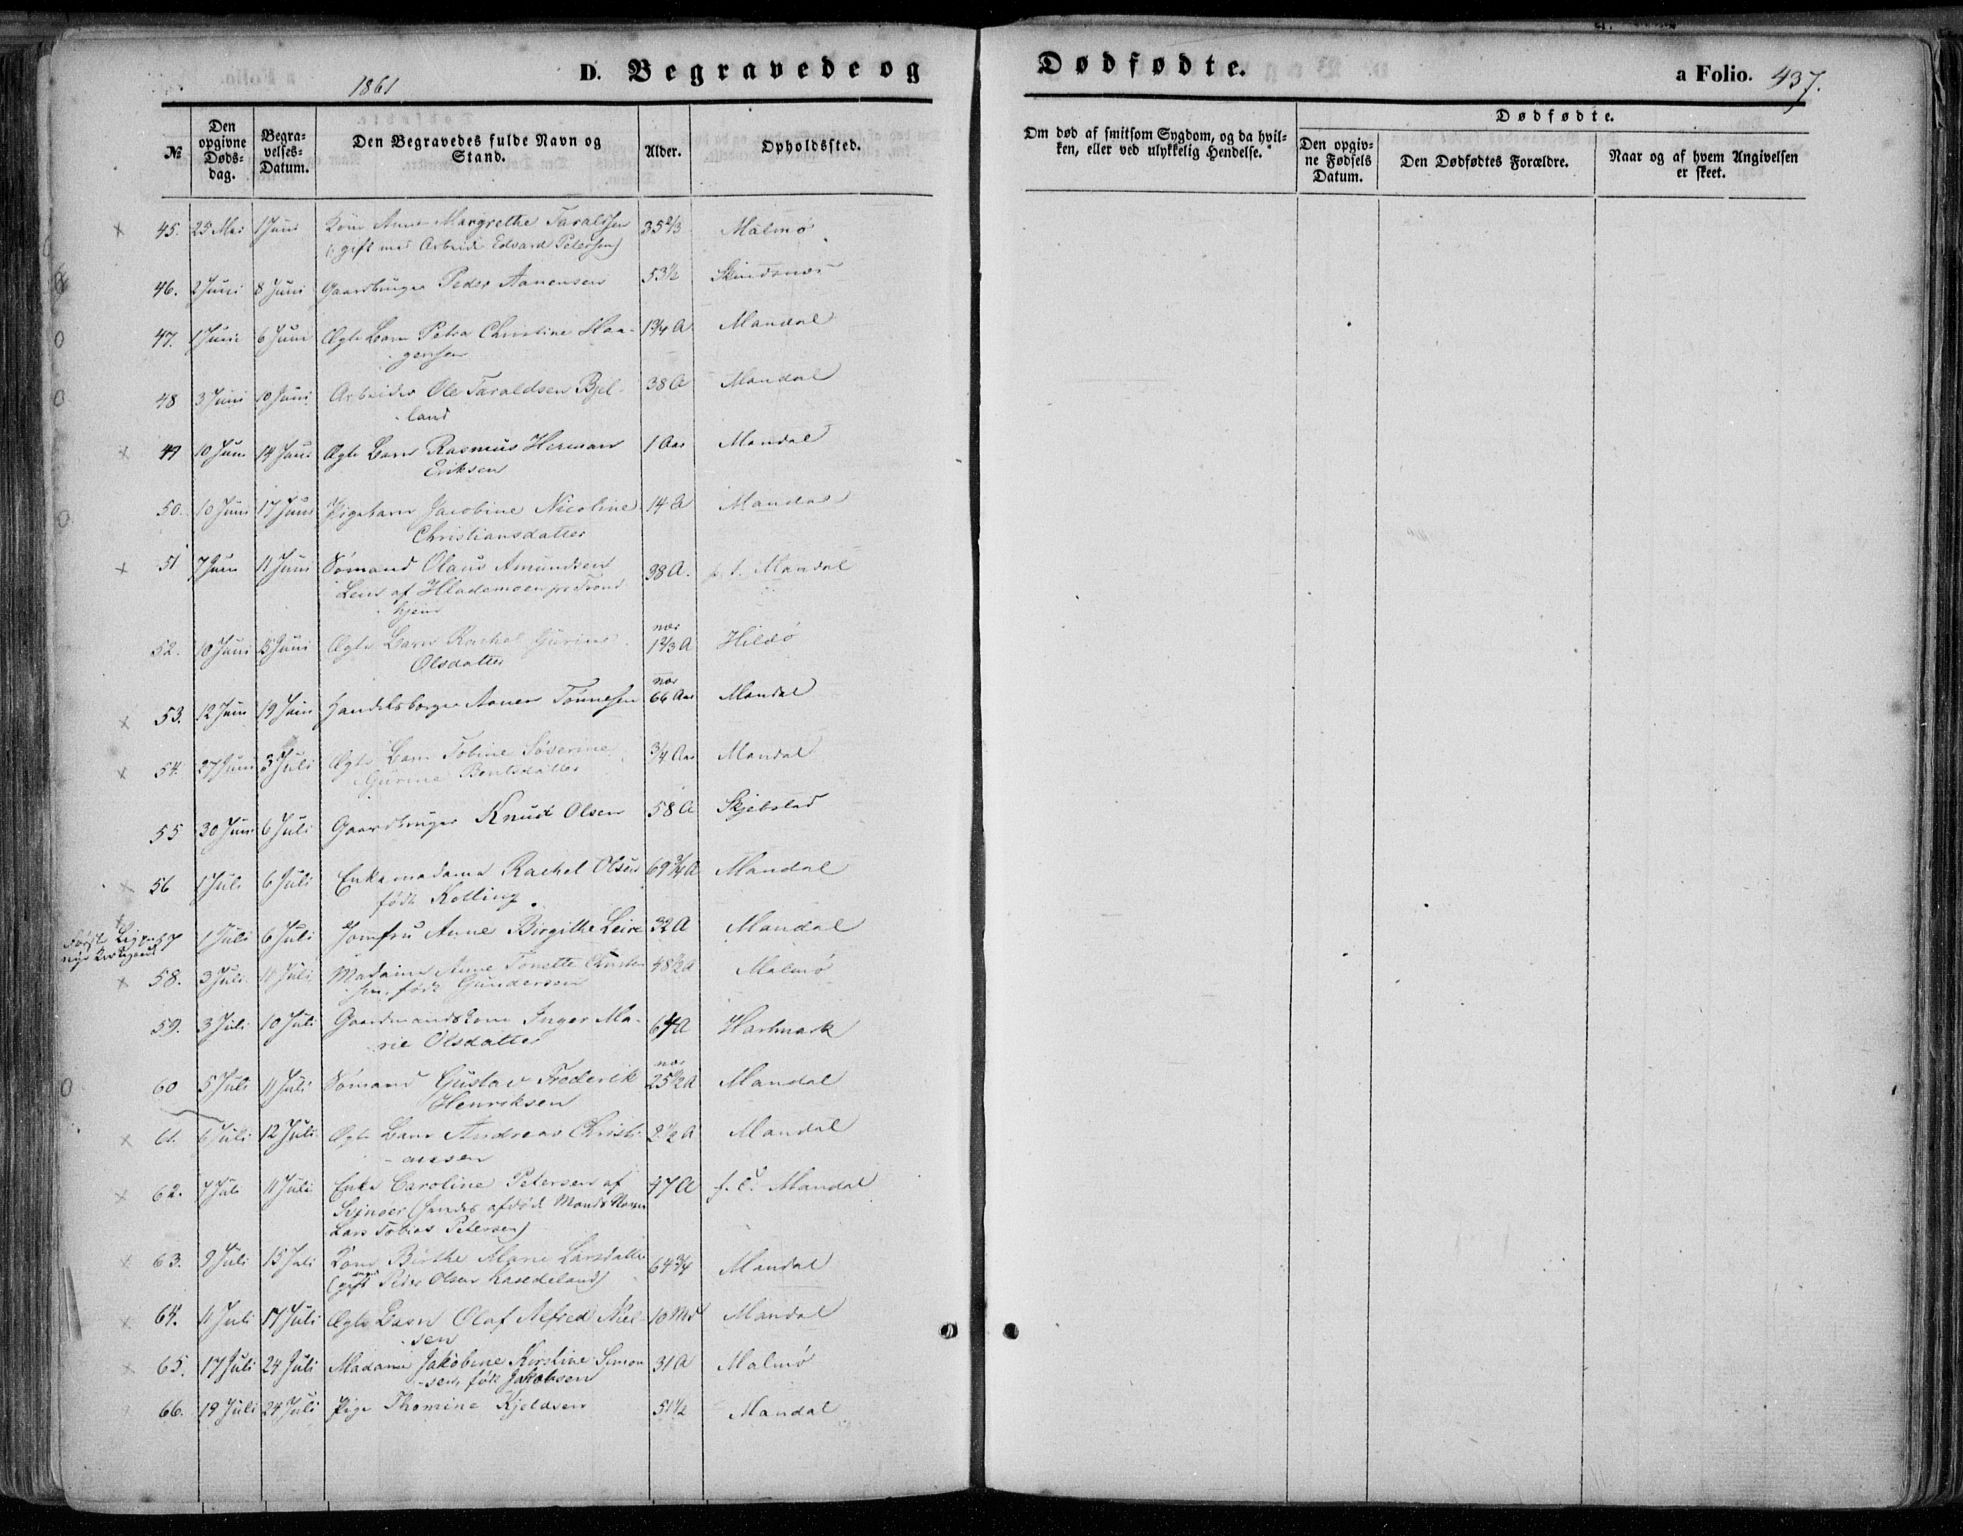 1861
D. Begravede og Dødfødte.
a Folio. 437.
№
Den opgivne Døds-dag.
Begra-velses-Datum.
Den Begravedes fulde Navn og Stand.
Alder.
Opholdssted.
Om død af smitsom Sygdom, og da hvil-
ken, eller ved ulykkelig Hendelse.
Dødfødte.
Den opgiv-
ne Fødsels
Datum.
Den Dødfødtes Forældre.
Naar og af hvem Angivelsen
er skeet.
45. 25 Mai 1 Juni Kone Anne Margrethe Taraldsen 35 2/3 Malmø
(gift med Arbeider Edvard Petersen)
46. 2 Juni 8 Juni Gaardbruger Peder Aanensen 53 1/2 Skindsnæs
47. 1 Juni 6 Juni Ægte Barn Petra Christine Haa- 1 3/4 A Mandal
gensen
48 3 Juni 10 Juni Arbeider Ole Taraldsen Bjel- 38 A Mandal
land
49 10 Juni 14 Juni Ægte Barn Rasmus Herman 1 Aar Mandal
Eriksen
50. 10 Juni 17 Juni Pigebarn Jacobine Nicoline 14 A Mandal
Christiansdatter
51 7 Juni 11 Juni Sømand Olaus Amundsen 38 A. p. t. Mandal
af Hlademoen pr Trond
hjem
52. 10 Juni 15 Juni Ægte Barn Rachel Gurine nær 1 2/3 A Hildø
Olsdatter
53. 12 Juni 19 Juni Handelsborger Aanen Tønnesen nær 66 Aar Mandal
54. 27 Juni 3 Juli Ægte Barn Tobine Søverine 3/4 Aar Mandal
Gurine Bentsdatter
55 30 Juni 6 Juli Gaardbruger Knud Olsen 58 A Skjebstad
56 1 Juli 6 Juli Enkemadame Rachel Olsen 69 3/4 A Mandal
født Kolling.
Første Lig paa
nye Kirkegaard
57 1 Juli 6 Juli Jomfru Anne Birgitte Leire 32 A Mandal
58. 3 Juli 11 Juli Madame Anne Tonette Christen 48 1/2 A Malmø
sen, født Gundersen
59. 3 Juli 10 Juli Gaardmandskone Inger Ma- 64 A Hartmark
rie Olsdatter
60 5 Juli 11 Juli Sømand Gustav Frederik nær 25 1/2 A Mandal
Henriksen
61. 6 Juli 12 Juli Ægte Barn Andreas Christi- 2 1/2 A Mandal
ansen
62. 7 Juli 11 Juli Enke Caroline Petersen af 47 A p. t. Mandal
(hendes afdøde Mands Navn
Lars Tobias Petersen)
63. 9 Juli 15 Juli Kone Birthe Marie Larsdatter 64 3/4 Mandal
(gift med Peder Olsen Kaseleland)
64. 11 Juli 17 Juli Ægte Barn Olaf Alfred Niel- 10 Md Mandal
sen
65. 17 Juli 24 Juli Madame Jakobine Kirstine Simon 31 A Malmø
sen, født Jakobsen
66. 19 Juli 24 Juli Pige Thomine Kjeldsen 51 1/2 Mandal